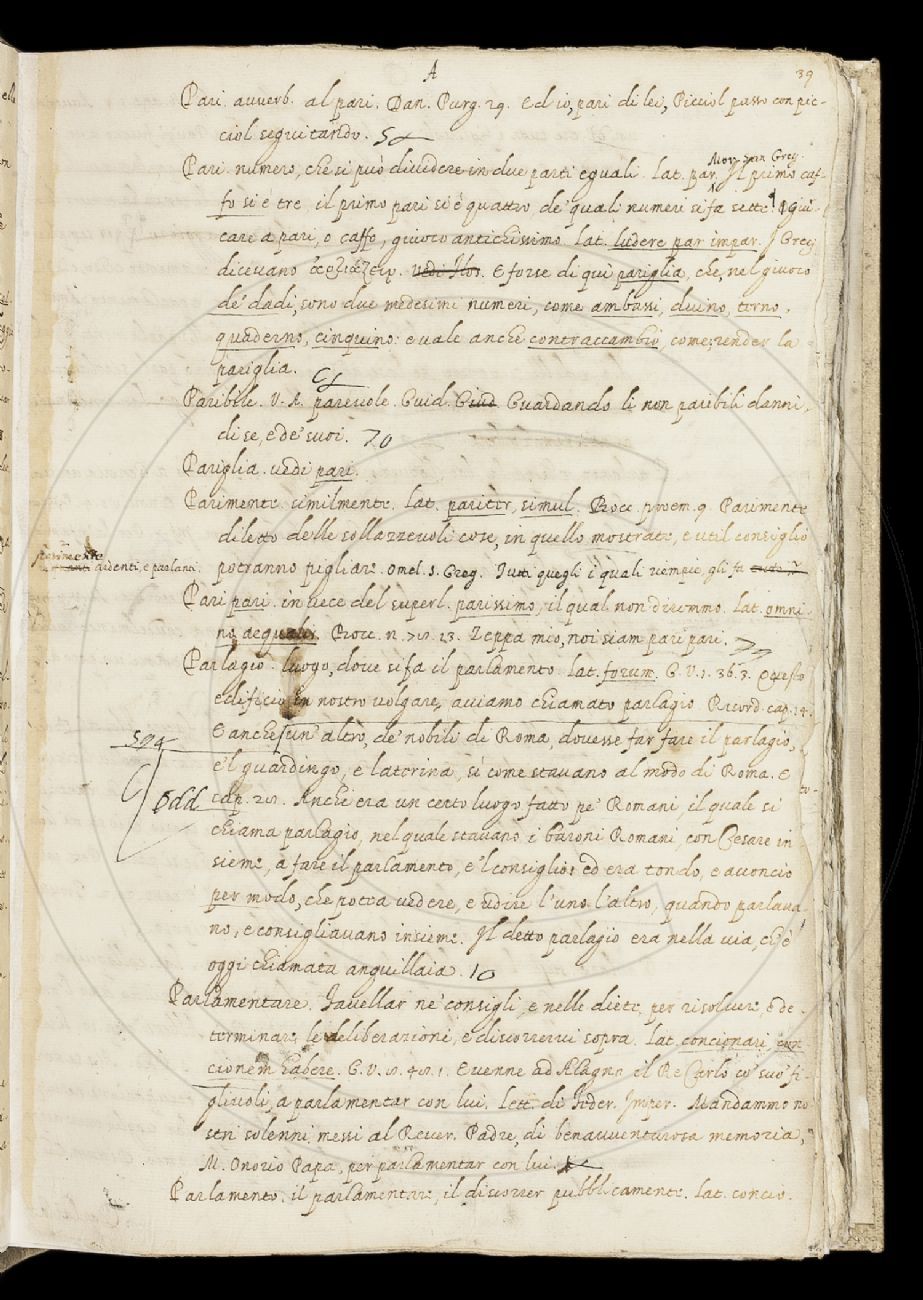 A
39
Pari. avverb. al pari. Dan. Purg. 29. Ed io, pari di lei, Picciol passo con pic-
ciol seguitando.
Pari. numero, che si può dividere in due parti eguali. Lat. par. Mor. San Greg. Il primo caf-
fo si è tre, il primo pari si è quattro, de' quali numeri si fa sette. Giu-
care a pari, o caffo, giuoco antichissimo. Lat. ludere par impar. I Greci
dicevano vedi E forse di qui pariglia, che, nel giuoco
de' dadi, sono due medesimi numeri, come ambassi, duino, terno,
quaderno, cinquino: e vale anche contraccambio, come, render la
pariglia.
Paribile. V. A. parevole. Guid. Giud. Guardando li non paribili danni,
di se, e de' suoi. 70
Pariglia. vedi pari.
Parimente. similmente. Lat. pariter, simul. Bocc. proem. 9. Parimente
diletto delle sollazzevoli cose, in quelle mostrate, e util consiglio
potranno pigliare. Omel. S. Greg. Tutti quegli i quali riempie, gli fa
parimente ardenti, e parlanti.
Pari pari. in vece del superl. parissimo, il qual non diremmo. Lat. omni-
no aequalis. Bocc. n. 13. Zeppa mio, noi siam pari pari.
Parlagio. luogo, dove si fa il parlamento. Lat. forum. G. V. 1. 36. 3. Questo
edificio in nostro volgare, avviamo chiamato parlagio. Ricord. cap. 14.
E anche un' altro, de' nobili di Roma, dovesse far fare il parlagio,
594
e 'l guardingo, e laterina, sì come stavano al modo di Roma. E
cap. Anche era un certo luogo fatto pe' Romani, il quale si
chiama parlagio, nel quale stavano i baroni Romani, con Cesare in-
sieme, a fare il parlamento, e 'l consiglio: ed era tondo, e acconcio
per modo, che potea vedere, e udire l'uno l'altro, quando parlava-
no, e consigliavano insieme. Il detto parlagio era nella via, ch'è
oggi chiamata anguillaia. 10
Parlamentare. Favellar ne' consigli, e nelle diete, per risolvere, e de-
terminare le deliberazioni, e discorrervi sopra. Lat. concionari, con-
cionem habere. G. V. E venne ad Alagna il Re Carlo co' suo' fi-
gliuoli, a parlamentar con lui. Lett. di Feder. Imper. Mandammo no-
stri solenni messi al Rever. Padre, di benavventurosa memoria,
M. Onorio Papa, per parlamentar con lui.
Parlamento. il parlamentare, il discorrer pubblicamente. Lat. concio.